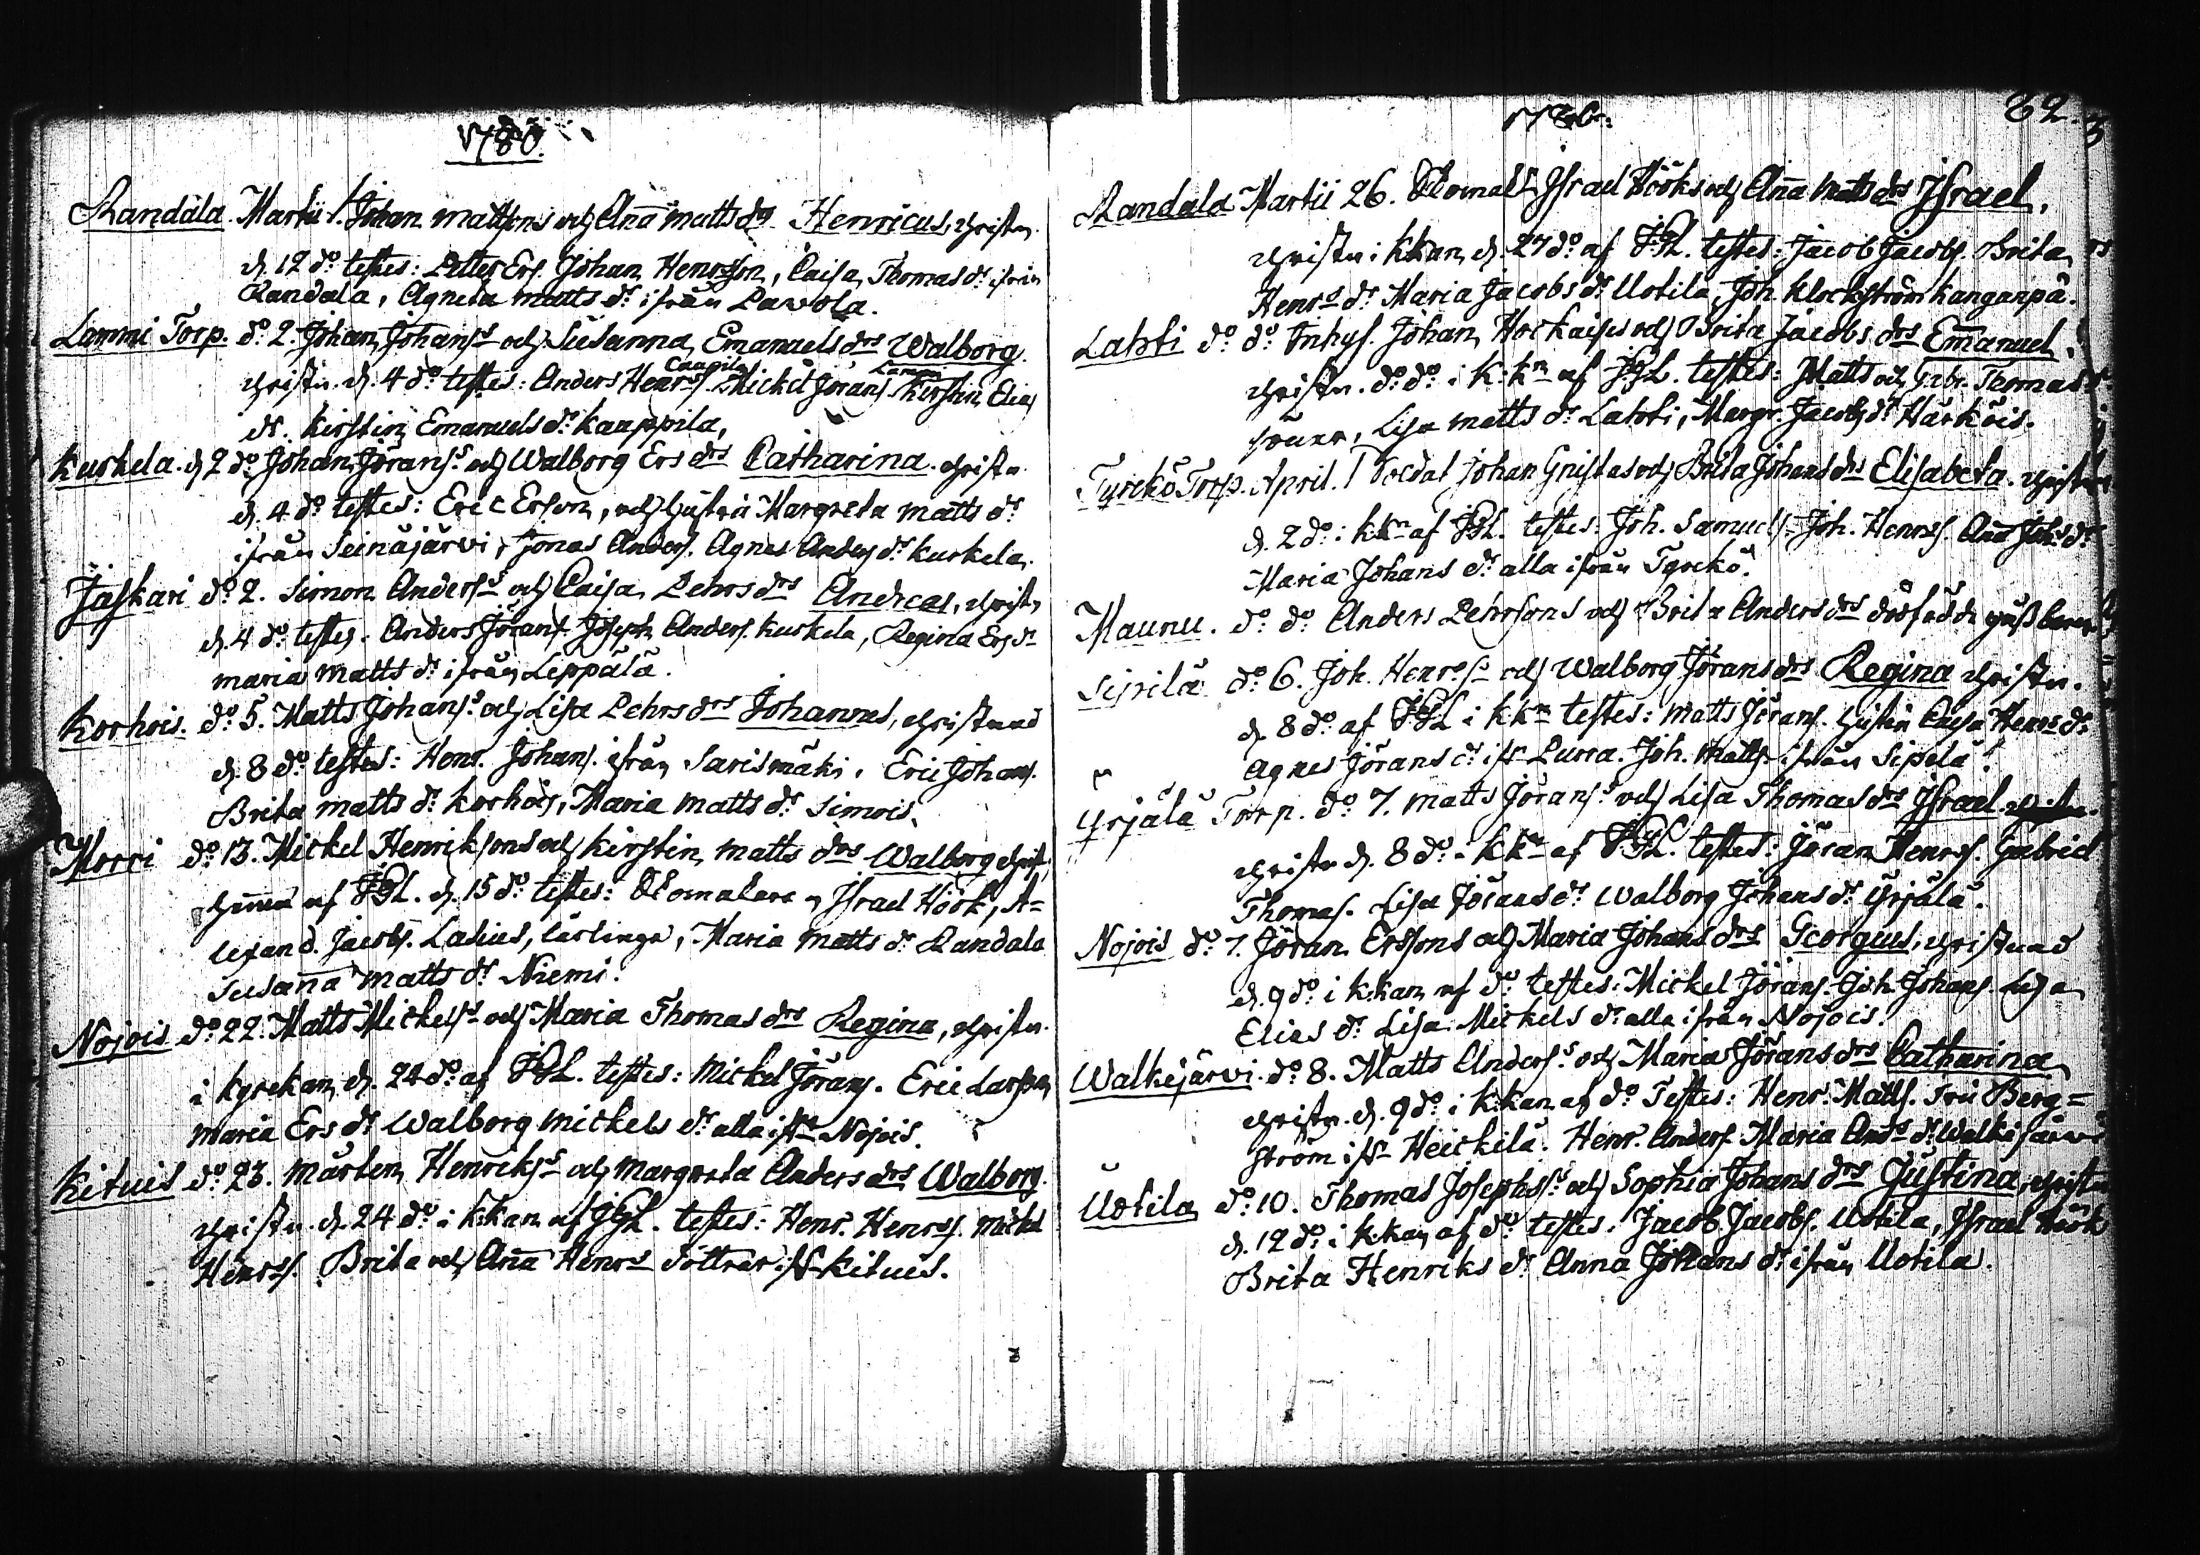 1780.
Randala. Martii 1. Johan Mattsons och Anna Matts drs Henricus, christn.
d. 12 do testes: Petter Ers. Johan Henrsson, Caisa Thomas dr ifrån
Randala, Agneta Matts dr ifrån Pawola.
Lammi Torp. do 2. Johan Johans s och Susanna Emanuels drs Walborg.
christn. d. 4 do testes: Anders Henrss. Caupila Mickel Jörans. Lammi Kirstin Elias
dr. Kirstin Emanuels dr Kauppila,
Kuskela. d 2 do Johan Jörans s och Walborg Ers drs Catharina. christn
d. 4 do testes: Eric Erson, och hustru Margreta Matts dr
ifrån Seinäjärvi, Jonas Anders. Agnes Anders dr Kuskela.
Jaskari do 2. Simon Anders s och Caisa Pehrs drs Andreas, christn
d. 4 do testes. Anders Jörans. Joseph Anders. Kuskela, Regina Ers dr
Maria Matts dr ifrån Leppälä.
Korhois. do 5. Matts Johans s och Lisa Pehrs drs Johannes, christnad
d. 8 do testes: Henr. Johans. ifrån Sarismäki, Eric Johans.
Brita Matts dr Korhois, Maria Matts dr Simois.
Morri do 13. Mickel Henriksons och Kirstin Matts drs Walborg christ.
hemma af JGL. d. 15 do testes: Skomakare n Israel Höök, A=
lexand. Jacobs. Lasius, lärlinge, Maria Matts dr Randala
Susanna Matts dr Niemi.
Nojois do 22. Matts Mickels s och Maria Thomas drs Regina, christn.
i kyrckan d. 24 do af JGL. testes: Mickel Jörans. Eric Larsson
Maria Ers dr Walborg Mickels dr alla ifrn Nojois.
Kituis do 23. Mårten Henriks s och Margreta Anders drs Walborg.
christn. d. 24 do i k:kan af JGL. testes: Henr. Henrss. Mickel
Henrss. Brita och Anna Henrs döttrar ifrn Kituis.
1780. 82.
Randala Martii 26. Skomak. Israel Hööks och Anna Matts drs Israel.
christn i kkan d. 27 do af JGL. testes: Jacob Jacobs. Brita
Henrs dr Maria Jacobs dr Uotila, Joh. Klockström Kanganpä.
Lahti do do Inhys. Johan Hockaises och Brita Jacobs drs Emanuel.
christn. do do i k:kn af JGL. testes: Matts och Gabr. Thomas
söner, Lisa Matts dr Lahti, Margr. Jacobs dr Härköis.
Tyrckö Torp. April. 1 Soldat Johan Gnistas och Brita Johans drs Elisabeta. christn
d. 2 do i kkn af JGL. testes: Joh. Samuels. Joh. Henrss. Anna Johs dr
Maria Johans dr alla ifrån Tyrckö.
Maunu. do do Anders Pehrsons och Brita Anders drs dödfödde gossbarn
Sipilä do 6. Joh. Henrs s och Walborg Jörans drs Regina christn.
d. 8 do af JGL i kkn testes: Matts Jörans. hustru Caisa Henrs dr
Agnes Jörans dr ifrn Purra. Joh. Matts. ifrån Sipilä.
Yrjälä Torp. do 7. Matts Jörans s och Lisa Thomas drs Israel
christn d. 8 do i kkn af JGL. testes: Jöran Henrss. Gabriel
Thomas. Lisa Jörans dr Walborg Johans dr Yrjälä.
Nojois do 7. Jöran Erssons och Maria Johans drs Georgius, christnad
d. 9 do i k:kan af do testes: Mickel Jörans. Joh. Johans. Lisa
Elias dr Lisa Mickels dr alla ifrån Nojois.
Walkejärvi. do 8. Matts Anders s och Maria Jörans drs Catharina
christn. d. 9 do i k:kan af do Testes: Henr. Matts. fru Berg=
ström ifrn Heickilä. Henr. Anders. Maria Ands dr Walkejärvi
Uotila do 10. Thomas Josephs s och Sophia Johans drs Justina, christn
d. 12 do i k:kan af do testes: Jacob Jacobs. Uotila, Israel Höök
Brita Henriks dr Anna Johans dr ifrån Uotila.